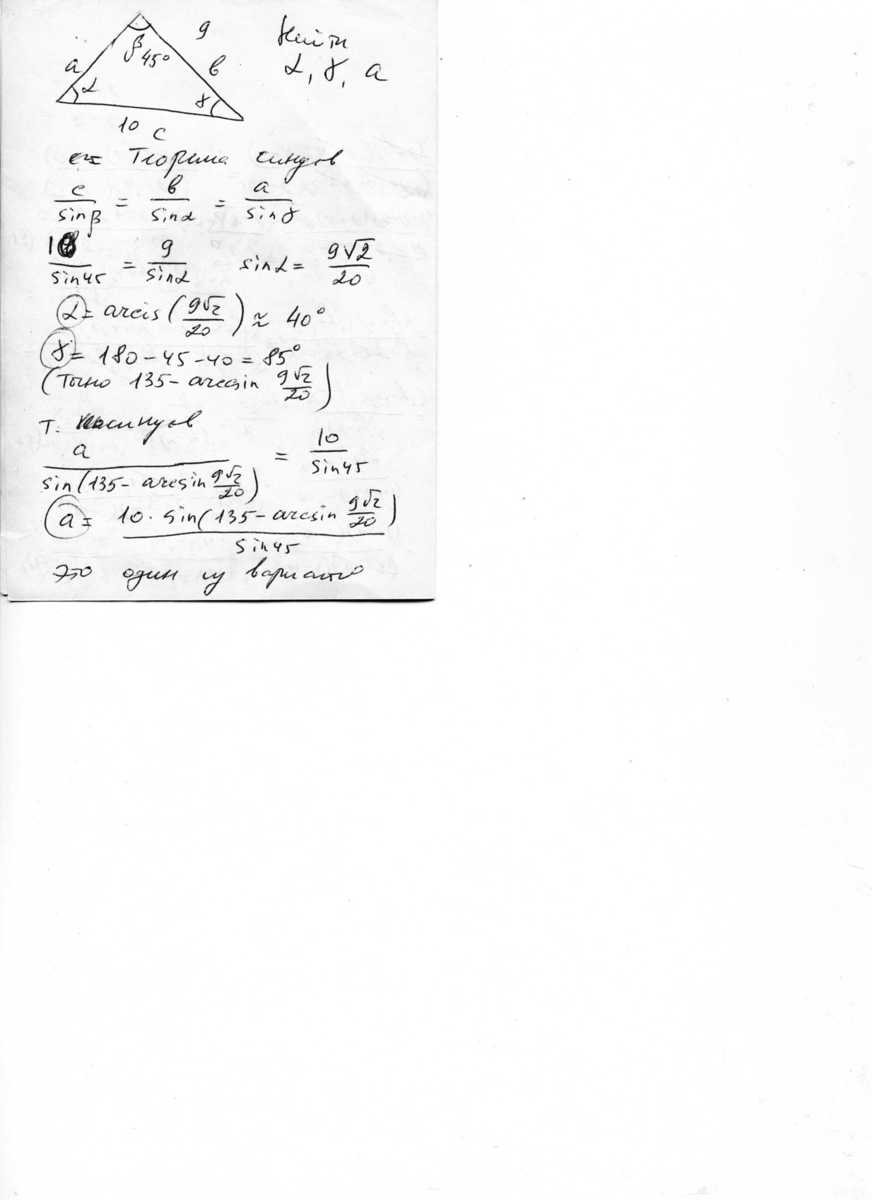 β 45° 9 Найти
a в α, γ, a
α γ
10 c
Теорема синусов
c/sinβ = в/sinα = a/sinγ
10/sin45 = 9/sinα sinα = 9√2/20
α = arcis(9√2/20) ≈ 40°
γ = 180 - 45 - 40 = 85°
(Точно 135 - arcsin 9√2/20)
т. синусов
a/sin(135 - arcsin 9√2/20) = 10/sin45
a = 10 · sin(135 - arcsin 9√2/20)/sin45
Это один из вариантов